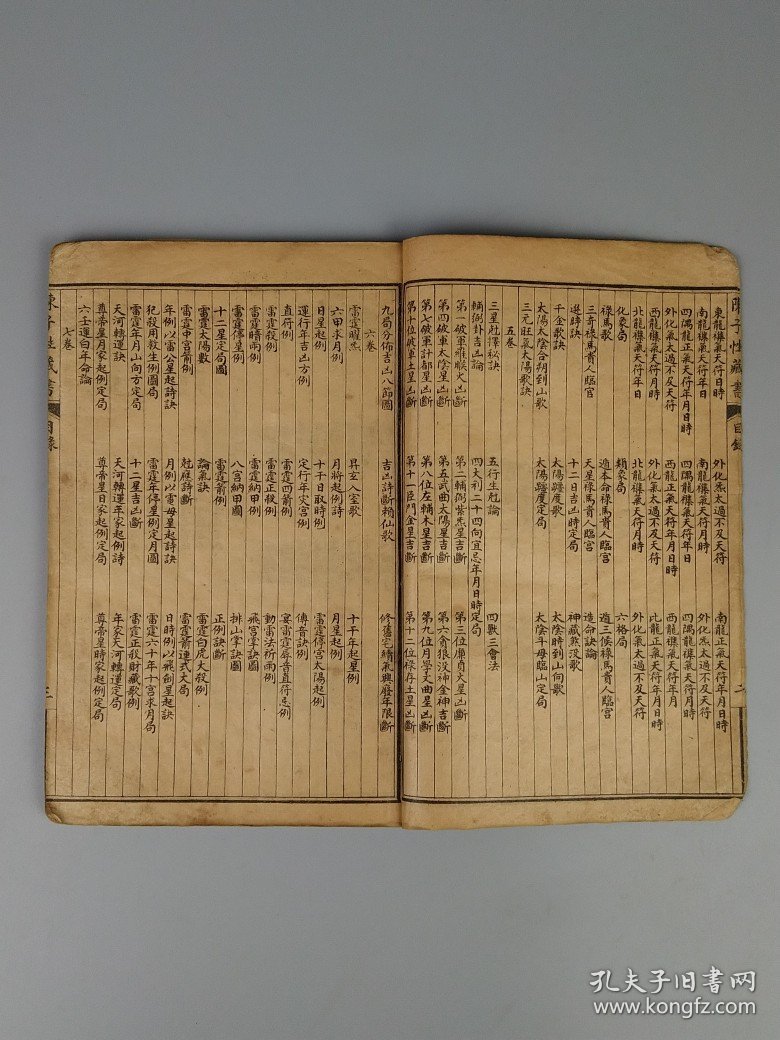 陳子性藏書
目錄
二
東龍穰氣天符日時 外化炁太過不及天符 南龍正氣天符年月日時
南龍穰氣天符年日 南龍穰氣天符月時 外化炁太過不及天符
四隅龍正氣天符年月日時 四隅龍穰氣天符年日 四隅龍穰氣天符月時
外化氣太過不及天符 西龍正氣天符年月日時 西龍穰氣天符年月
西龍穰氣天符日時 外化氣太過不及天符 北龍正氣天符年月日時
北龍穰氣天符年日 北龍穰氣天符月時 外化氣太過不及天符
化象局 類象局 六格局
祿馬歌 遁本命祿馬貴人臨宮 遁三候祿馬貴人臨宮
三奇祿馬貴人臨宮 天星祿馬貴人臨宮 造命訣論
選時訣 十二日吉凶時定局 神藏煞沒歌
千金歌訣 太陽躔度歌 太陰時到山向歌
太陽太陰合朔到山歌 太陽躔度定局 太陰斗母臨山定局
三元旺氣太陽歌訣
五卷
三星尅擇秘訣 五行生尅論 四獸三會法
輔弼卦吉凶論 四大利二十四向宜忌年月日時定局
第一破軍羅睺火凶斷 第二輔弼紫炁星吉斷 第三位廉貞火星凶斷
第四破軍太陰星凶斷 第五武曲太陽星吉斷 第六貪狼沒神金神吉斷
第七破軍計都星凶斷 第八位左輔木星吉斷 第九位月孛文曲星凶斷
第十位破軍土星凶斷 第十一臣門金星吉斷 第十二位祿存土星凶斷
九局分佈吉凶八節圖 吉凶詩斷賴仙歌 修舊宅續氣興廢年限斷
六卷
雷霆曜炁 昇玄入室歌 十干年起星例
六甲求月例 月將起例詩 月星起例
日星起例 十干日取時例 雷霆停宮太陽起例
運行年吉凶方例 定行年灾宮例 傳音訣例
直符例 雷霆西箭例 宴雷霆辱音直符忌例
雷霆殺例 雷霆正殺例 動雷法祈雨例
雷霆暗雨例 雷霆納甲例 飛宮掌訣圖
雷霆停星例 八宮納甲圖 排山掌訣圖
十二星定局圖 雷霆霆箭例 正例訣斷
雷霆太陽數 論氣訣 雷霆白虎大殺例
雷霆中宮箭例 尅應詩斷 雷霆箭連式大局
年例以雷公星起詩訣 月例以雷母星起詩訣 日時例以飛劍星起訣
犯殺用救生例圖局 雷霆年停星例定月圖 雷霆六十年十宮求月局
雷霆年月山向方定局 十二星吉凶例 雷霆正殺財藏歌例
天河轉運訣 天河轉運年家起例詩 年家天河轉運定局
尊帝星月家起例定局 尊帝星日家起例定局 尊帝星時家起例定局
六壬運白年命論
七卷
陳子性藏書
目錄
三
孔夫子旧书网
www.kongfz.com